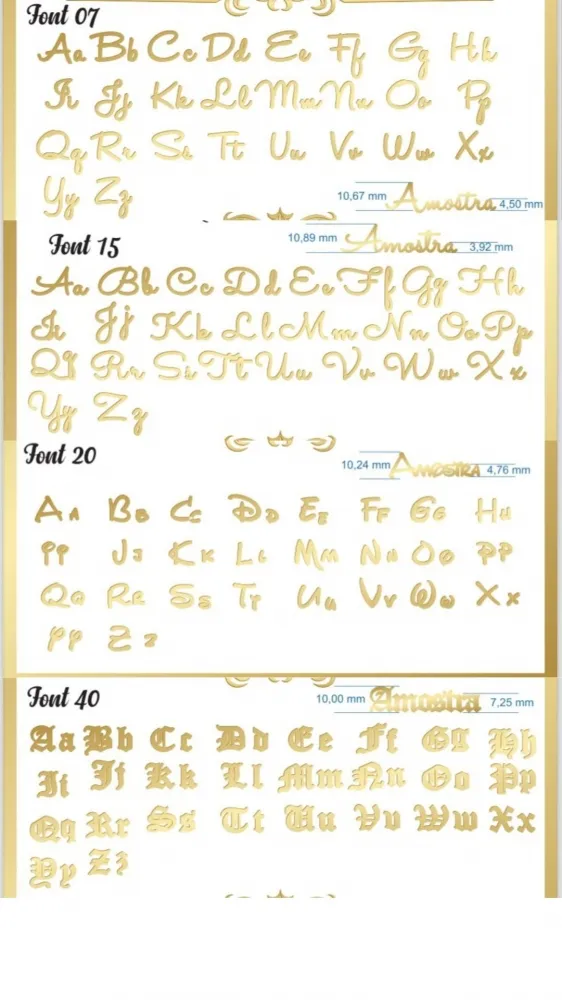 Font 07
Aa Bb Cc Dd Ee Ff Gg Hh
Ii Jj Kk Ll Mm Nn Oo Pp
Qq Rr Ss Tt Uu Vv Ww Xx
Yy Zz
10,67 mm Amostra 4,50 mm
Font 15
10,89 mm Amostra 3,92 mm
Aa Bb Cc Dd Ee Ff Gg Hh
Ii Jj Kk Ll Mm Nn Oo Pp
Qq Rr Ss Tt Uu Vv Ww Xx
Yy Zz
Font 20
10,24 mm Amostra 4,76 mm
Aa Bb Cc Dd Ee Ff Gg Hh
Jj Kk Ll Mm Nn Oo Pp
Qq Rr Ss Tt Uu Vv Ww Xx
Yy Zz
Font 40
10,00 mm Amostra 7,25 mm
Aa Bb Cc Dd Ee Ff Gg Hh
Ii Jj Kk Ll Mm Nn Oo Pp
Qq Rr Ss Tt Uu Vv Ww Xx
Yy Zz